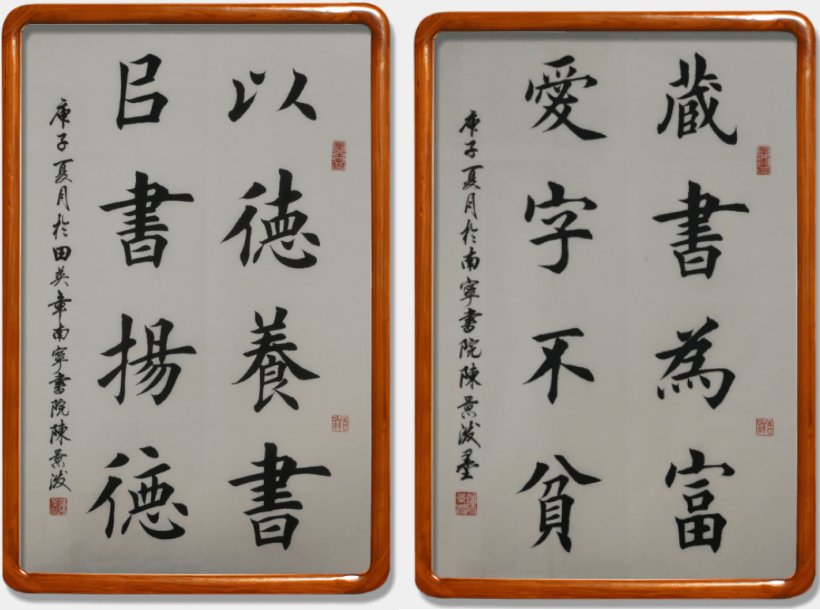 以德養書
㠯書揚德
庚子夏月於田英章南寧書院陳景
藏書為富
愛字不貧
庚子夏月於南寧書院陳景墨